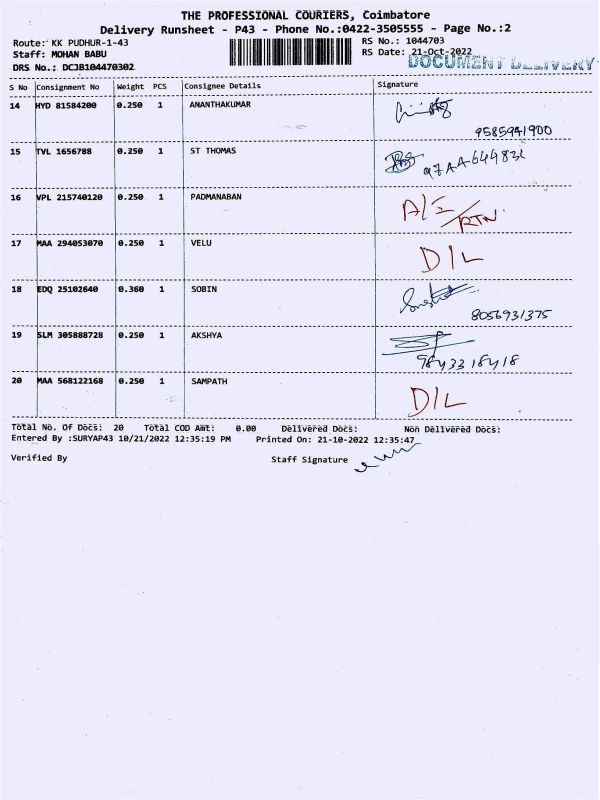 THE PROFESSIONAL COURIERS, Coimbatore
Delivery Runsheet - P43 - Phone No.:0422-3505555 - Page No.:2
Route: KK PUDHUR-1-43 RS No.: 1044703
Staff: MOHAN BABU RS Date: 21-Oct-2022
DRS No.: DCJB104470302 DOCUMENT DELIVERY
S No Consignment No Weight PCS Consignee Details Signature
14 HYD 81584200 0.250 1 ANANTHAKUMAR
9585941900
15 TVL 1656788 0.250 1 ST THOMAS
16 VPL 215740120 0.250 1 PADMANABAN
RTN
17 MAA 294053070 0.250 1 VELU D/L
18 EDQ 25102640 0.360 1 SOBIN
8056931375
19 SLM 305888728 0.250 1 AKSHYA
9843318418
20 MAA 568122168 0.250 1 SAMPATH D/L
Total No. Of Docs: 20 Total COD Amt: 0.00 Delivered Docs: Non Delivered Docs:
Entered By :SURYAP43 10/21/2022 12:35:19 PM Printed On: 21-10-2022 12:35:47
Verified By Staff Signature